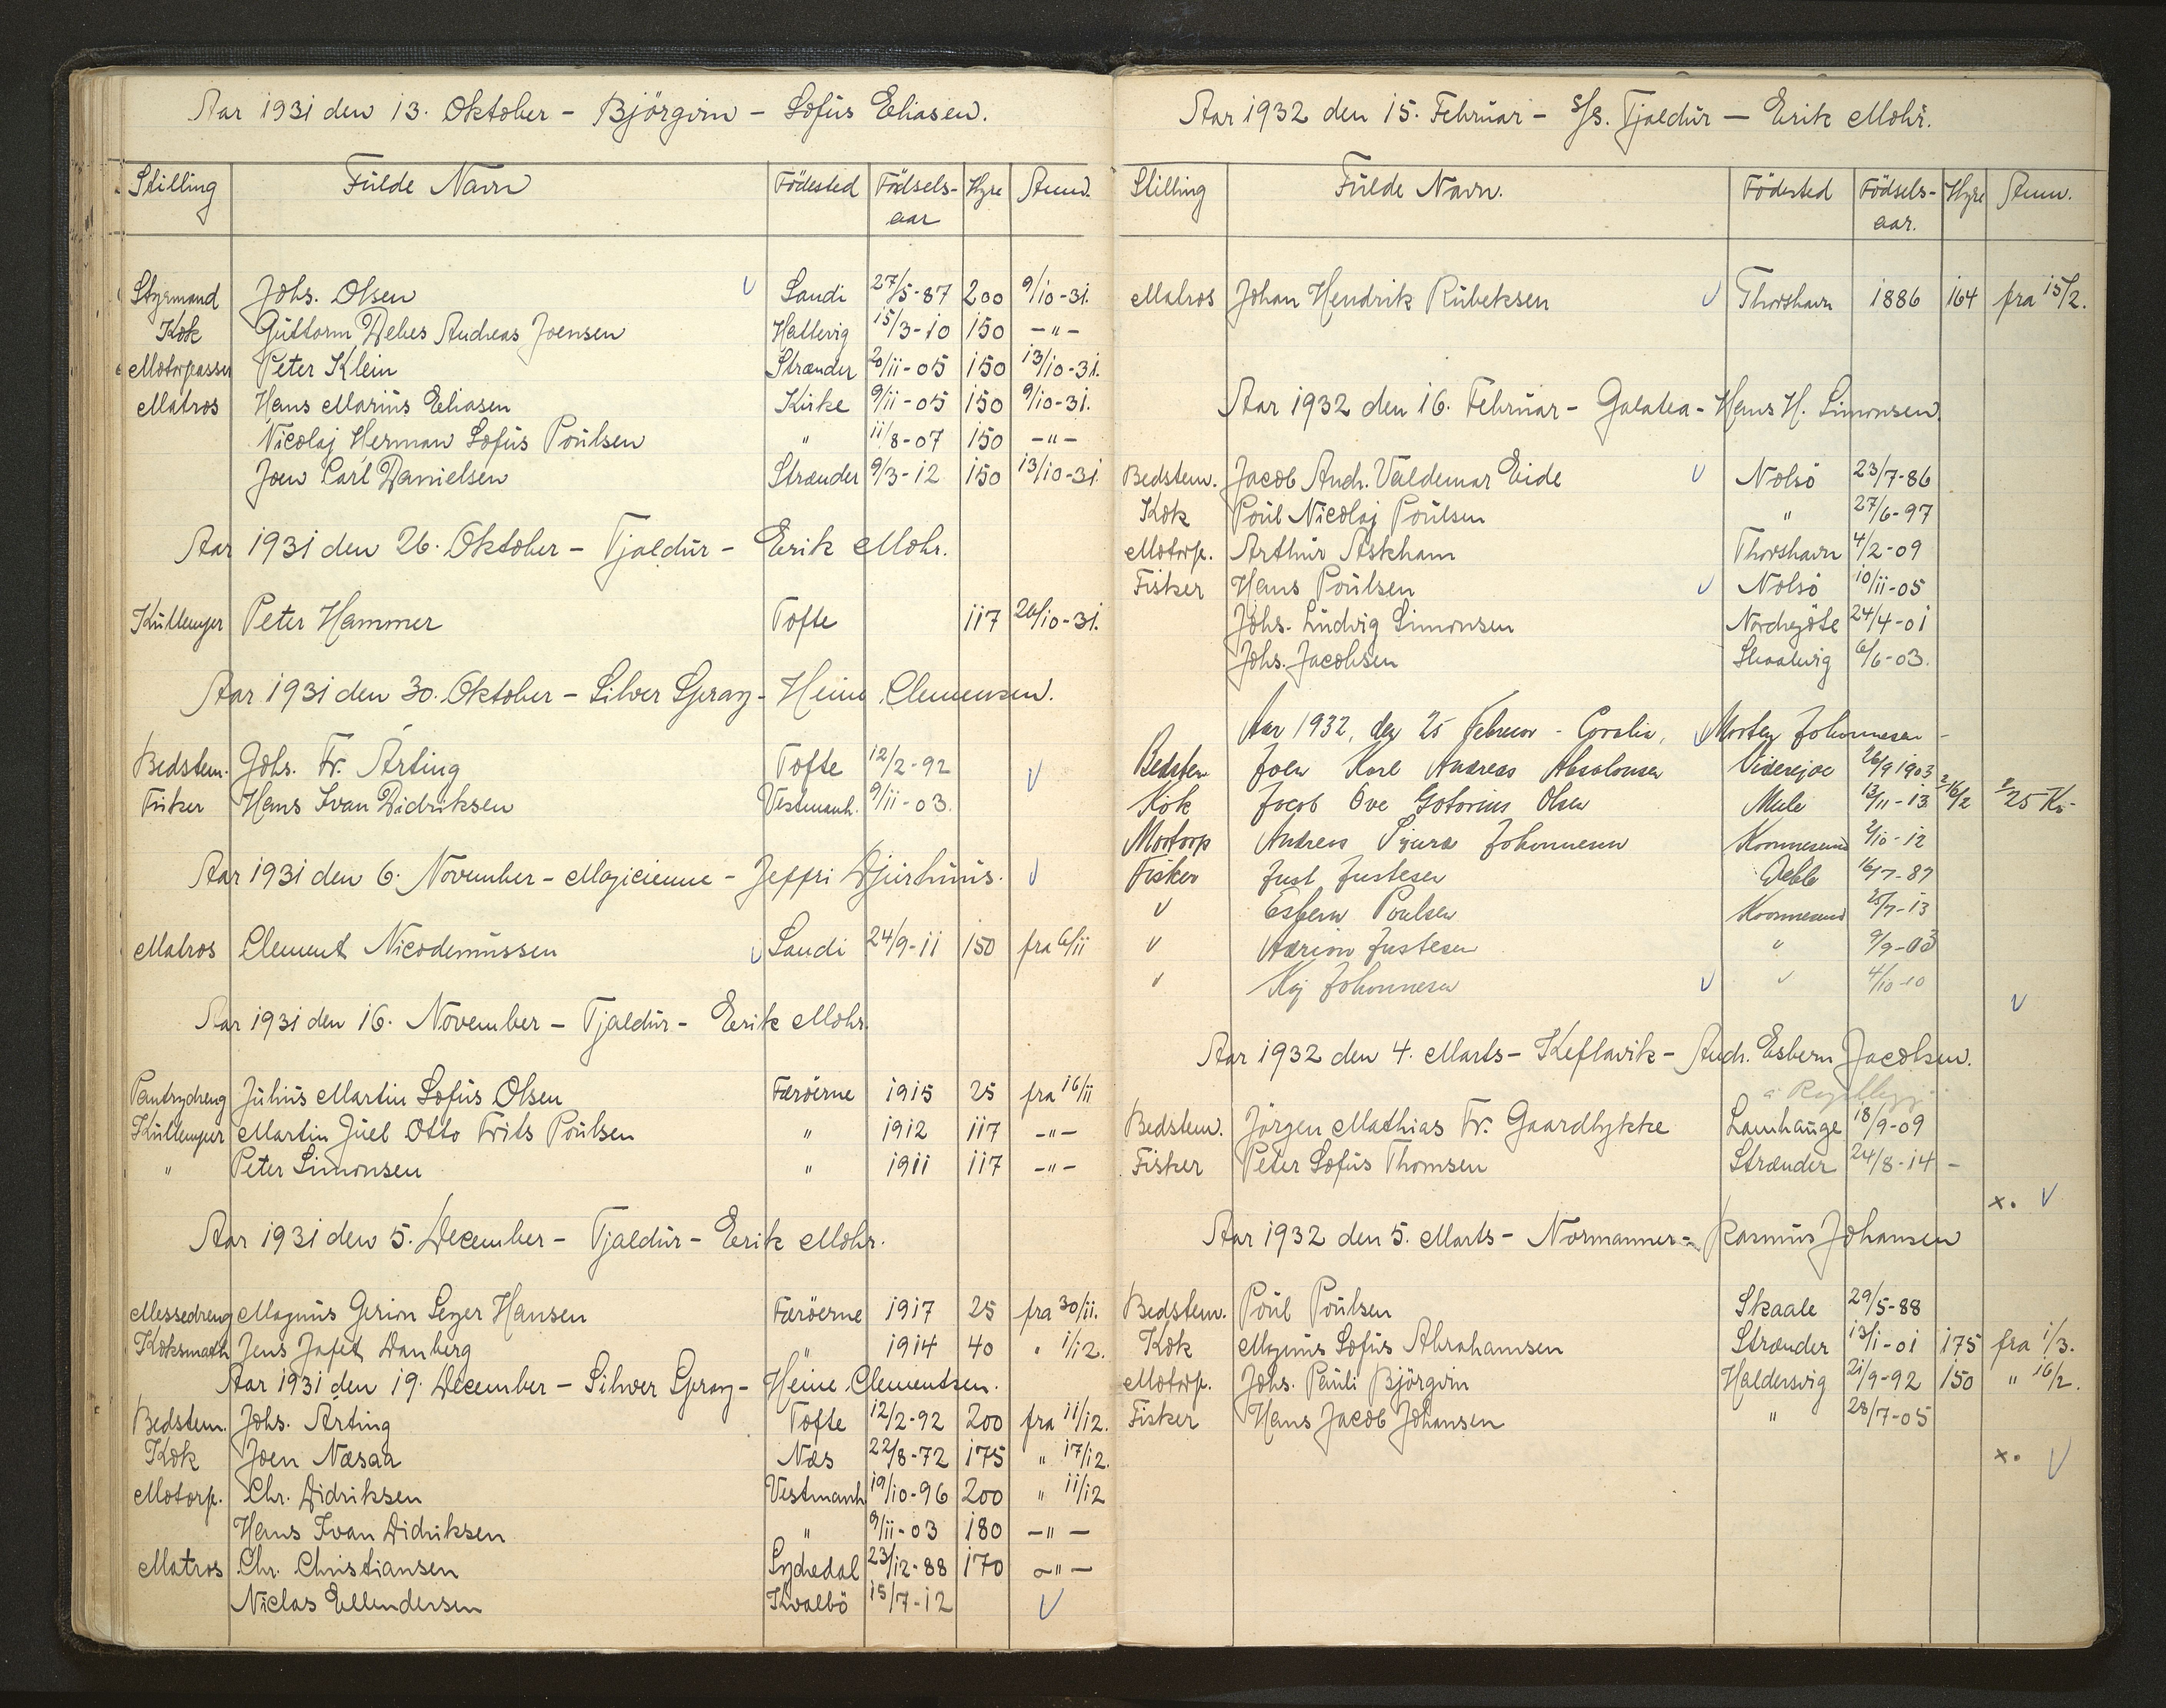 Aar 1931 den 13. Oktober - Björgvin - Sofus Eliasen.
Stilling Fulde Navn Födested Födsels- Hyre Anm.
aar
Styrmand Johs. Olsen Sandi 27/5-87 200 9/10-31.
Kok Guttorm Debes Andreas Joensen Hattervig 15/3-10 150 -"-
Motorpasser Peter Klein Strænder 20/11-05 150 13/10-31.
Matros Hans Marius Eliasen Kirke 9/11-05 150 9/10-31.
Nicolaj Herman Sofus Poulsen " 11/8-07 150 -"-
Joen Carl Danielsen Strænder 9/3-12 150 13/10-31
Aar 1931 den 26. Oktober - Tjaldur - Erik Mohr.
Kullemper Peter Hammer Tofte 117 26/10-31.
Aar 1931 den 30. Oktober - Silver Spray - Heine Clementsen.
Bedstem. Johs. Fr. Árting Tofte 12/2-92
Fisker Hans Ivan Didriksen Vestmanh. 9/11-03.
Aar 1931 den 6. November - Magicienne - Jeffri Djurhuus.
Matros Clement Nicodemussen Sandi 24/9-11 150 fra 6/11
Aar 1931 den 16. November - Tjaldur - Erik Mohr.
Pantrydreng Julius Martin Sofus Olsen Færöerne 1915 25 fra 16/11
Kullemper Martin Juel Otto Frits Poulsen " 1912 117 -"-
" Peter Simonsen " 1911 117 -"-
Aar 1931 den 5. December - Tjaldur - Erik Mohr.
Messedreng Magnus Gerion Sezer Hansen Færöerne 1917 25 fra 30/11.
Koksmath Jens Jafet Danberg " 1914 40 " 1/12.
Aar 1931 den 19. December - Silver Spray - Heine Clementsen.
Bedstem. Johs. Árting Tofte 12/2-92 200 fra 11/12.
Kok Joen Næsaa Næs 22/8-72 175 " 17/12.
Motorp. Chr. Didriksen Vestmanh 19/10-96 200 " 11/12
Hans Ivan Didriksen " 9/11-03 180 -"-
Matros Chr. Christiansen Sydredal 23/12-88 170 -"-
Niclas Ellendersen Kvalbö 15/7-12
Aar 1932 den 15. Februar - S/S. Tjaldur - Erik Mohr.
Stilling Fulde Navn. Födested Födsels- Hyre Anm.
aar.
Matros Johan Hendrik Rubeksen Thorshavn 1886 164 fra 15/2.
Aar 1932 den 16. Februar - Galatea - Hans H. Simonsen.
Bedstem. Jacob Andr. Valdemar Eide Nolsö 23/7-86
Kok Poul Nicolaj Poulsen " 27/6-97
Motorp. Arthur Askham Thorshavn 4/2-09
Fisker Hans Poulsen Nolsö 10/11-05
Johs. Ludvig Simonsen Nordregöte 24/4-01
Johs. Jacobsen Skaalevig 6/6-03.
Aar 1932, den 25 Februar - Coralia, Morten Johannesen -
Bedstem Joen Karl Andreas Absalonsen Viderejde 26/9 1903
Kok Jacob Ove Gotorius Olsen Mule 13/11-13 16/2 25 Kr.
Motorp Andreas Sjurd Johannesen Kvannesund 2/10-12
Fisker Just Justesen Deble 16/7-87
" Esbern Poulsen Kvannesund 25/7-13
" Marion Justesen " 9/9-03
" Kaj Johannesen " 4/10-10
Aar 1932 den 4. Marts - Keflavik - Andr. Esbern Jacobsen.
Bedstem. Jörgen Mathias Fr. Gaardlykke Lamhauge 18/9-09
Fisker Peter Sofus Thomsen Strænder 24/8-14 -
x.
Aar 1932 den 5. Marts - Normanner - Rasmus Johansen
Bedstem. Poul Poulsen Skaale 29/5-88
Kok Magnus Sofus Abrahamsen Strænder 13/1-01 175 fra 1/3.
Motorp. Johs. Pauli Björgvin Haldersvig 21/9-92 150 " 16/2.
Fisker Hans Jacob Johansen " 28/7-05
x.